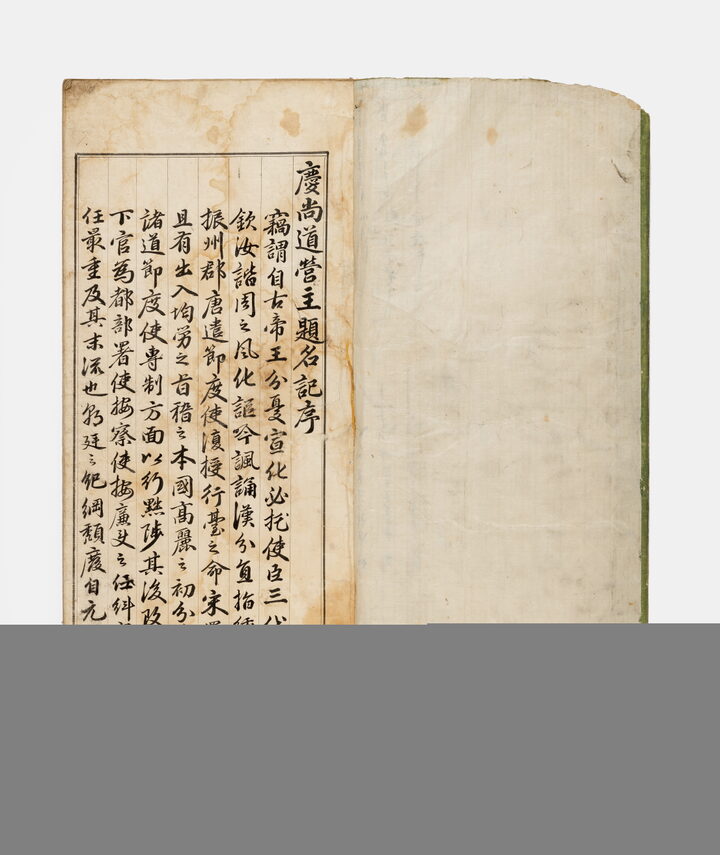 慶尚道營主題名記序
竊謂自古帝王分憂宣化必托使臣三代
欽汝諧周之風化謳吟諷誦漢分直指
振州郡唐遣節度使復授行臺之命宋
且有出入均勞之旨稽之本國高麗之初分
諸道節度使專制方面以行黜陟其後改
下官爲都部署使按察使按廉史之任糾
任最重及其末流也朝廷之紀綱頹廢自元